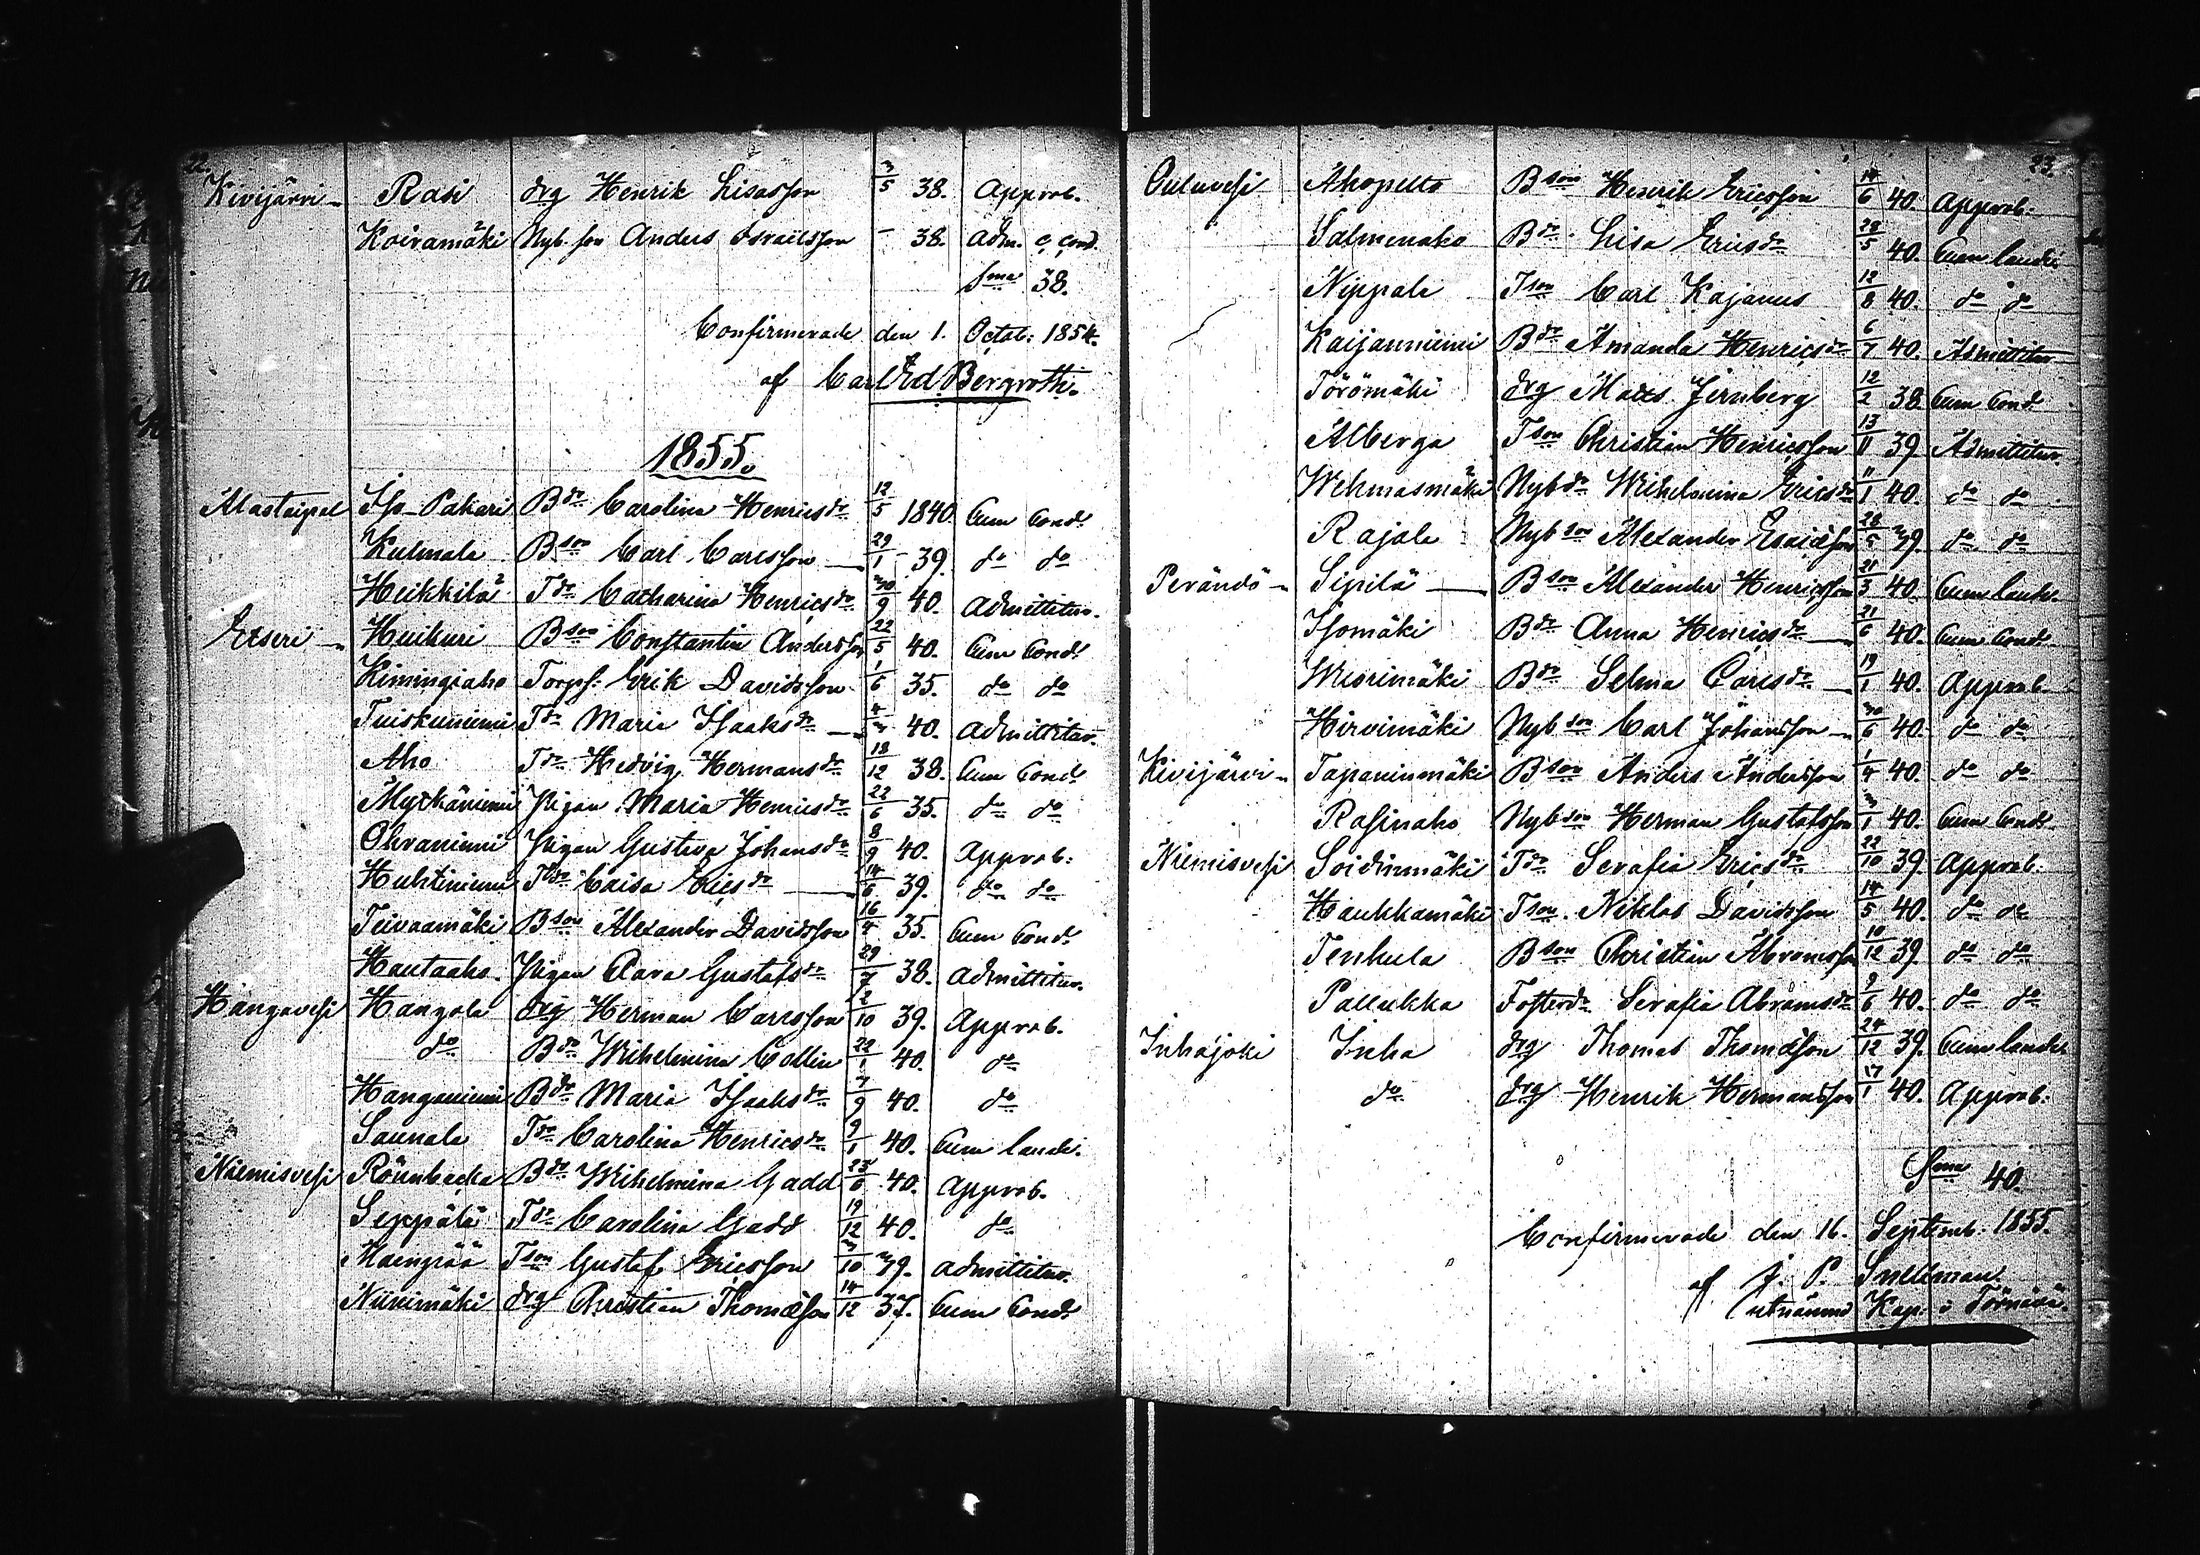 22.
Kivijärvi Rasi drg Henrik Lisasson 3/5 38. Approb.
Koiramäki Nyb. son Anders Israelsson – 38. Adm. c. cond.
Sma 38.
Confirmerade den 1. Octob: 1854.
af Carl Ed Bergroth.
1855.
Alastaipal Iso-Pakari Bdr Carolina Henricsdr 12/5 1840. Cum Cond.
Kulmala Bson Carl Carlsson 29/1 39. do do
Heikkilä Tdr Catharina Henricsdr 30/9 40. Admittitur.
Etseri Huikuri Bson Constantin Andersson 22/5 40. Cum Cond.
Kiminginaho Torps. Erik Davidsson 1/6 35. do do
Tuiskuniemi Tdr Maria Isaaksdr 4/3 40. Admittitur.
Aho Tdr Hedvig Hermansdr 18/12 38. Cum Cond.
Myrkäniemi Pigan Maria Henricsdr 22/6 35. do do
Ohraniemi Pigan Gustava Johansdr 8/9 40. Approb:
Huhtiniemi Tdr Caisa Ericsdr 14/6 39. do do
Teivaamäki Bson Alexander Davidsson 16/4 35. Cum Cond.
Hautaaho Pigan Clara Gustafsdr 29/7 38. Admittitur.
Hangavesi Hangola drg Herman Carlsson 2/10 39. Approb.
do Bdr Wilhelmina Collin 22/1 40. do
Hanganiemi Bdr Maria Isaaksdr 7/9 40. do
Saunala Tdr Carolina Henricsdr 9/1 40. Cum laude.
Niemisvesi Rönnbacka Bdr Wilhelmina Gadd 40. Approb.
Seppälä Tdr Carolina Gadd 19/12 40. do
Maengrää Tson Gustaf Ericsson 3/10 39. Admittitur.
Niinimäki drg Christian Thomasson 14/12 37. Cum Cond.
23.
Ouluvesi Ahopelto Bson Henrik Ericsson 14/6 40. Approb.
Salmenaho Bdr Lisa Ericsdr 28/5 40. Cum laude
Nippala Tson Carl Kajanus 12/8 40. do do
Kaijanniemi Bdr Amanda Henricsdr 6/7 40. Admittitur
Törömäki drg Matts Jernberg 12/2 38 Cum Cond.
Alberga Tson Christian Henricsson 13/11 39 Admittitur.
Wehmasmäki Nybdr Wilhelmina Ericsdr 11/1 40. do do
Rajala Nybson Alexander Esaiasson 28/5 39. do do
Perändö Sipilä Bson Alexander Henricsson 21/3 40. Cum laude.
Isomäki Bdr Anna Henricsdr 21/6 40. Cum Cond.
Wuorimäki Bdr Selma Carlsdr 19/1 40. Approb.
Hirvimäki Nybson Carl Johansson 30/6 40. do do
Kivijärvi Tapaninmäki Bson Anders Andersson 1/4 40. do do
Rasinaho Nybson Herman Gustafsson 3/1 40. Cum Cond.
Niemisvesi Soidinmäki Tdr Serafia Ericsdr 22/10 39. Approb.
Haukkamäki Tson Niklas Davidsson 14/5 40. do do
Tenhula Bson Christian Abramsson 10/12 39. do do
Pallukka Fosterdr Serafia Abramsdr 9/6 40. do do
Inhajoki Inha drg Thomas Thomasson 24/12 39. Cum laude.
do drg Henrik Hermansson 17/1 40. Approb.
Sma 40.
Confirmerade den 16. Septemb. 1855.
af J. P. Snellman.
utnämnd Kap. i Törnävä.